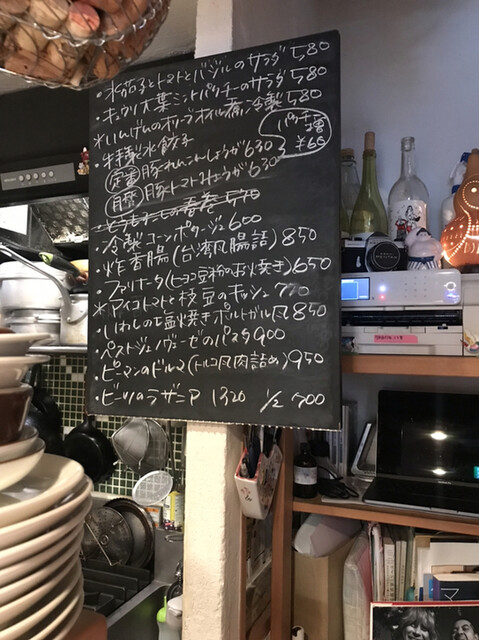 ・水茄子とトマトとバジルのサラダ 580
・キュウリ大葉ミントパクチーのサラダ 580
*いんげんのオリーブオイル煮冷製 580
・特製水餃子
パクチー増 ¥60
定番 豚れんこんしょうが 630
月替 豚トマトみょうが 630
・とうもろこしの春巻 570
・冷製コーンポタージュ 600
・炸香腸(台湾風腸詰) 850
・ファリナータ(ヒヨコ豆粉のお焼き) 650
*アスパラトマトと枝豆のキッシュ 770
・いわしの塩焼きポルトガル風 850
・ペストジェノヴェーゼのパスタ 900
・ピーマンのドルマ(トルコ風肉詰め) 950
・ビーツのラザニア 1320 1/2 700